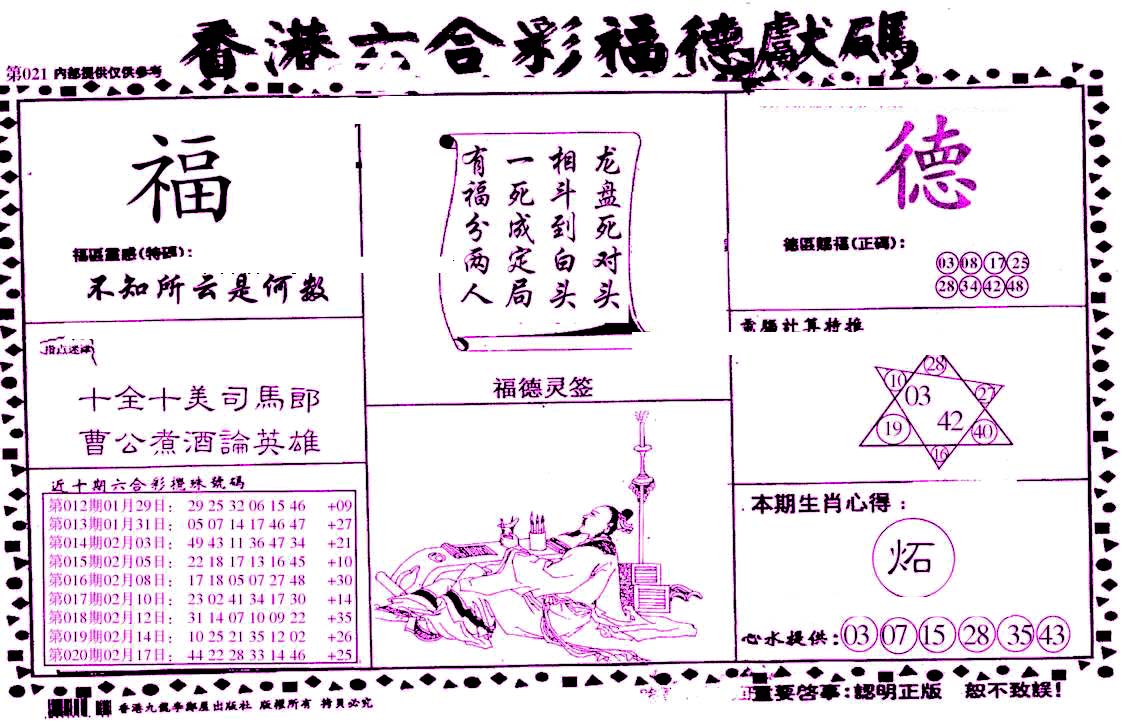 香港六合彩福德獻碼
第021 內部提供仅供參考
福
福區靈感(特碼):
不知所云是何数
指点迷津
十全十美司馬郎
曹公煮酒論英雄
近十期六合彩攪珠號碼
第012期01月29日: 29 25 32 06 15 46 +09
第013期01月31日: 05 07 14 17 46 47 +27
第014期02月03日: 49 43 11 36 47 34 +21
第015期02月05日: 22 18 17 13 16 45 +10
第016期02月08日: 17 18 05 07 27 48 +30
第017期02月10日: 23 02 41 34 17 30 +14
第018期02月12日: 31 14 07 10 09 22 +35
第019期02月14日: 10 25 21 35 12 02 +26
第020期02月17日: 44 22 28 33 14 46 +25
龙盘死对头
相斗到白头
一死成定局
有福分两人
福德灵签
德
德區賜福(正碼):
03 08 17 25
28 34 42 48
電腦計算特推
28
10 27
03
42
19 40
16
本期生肖心得:
炻
心水提供:03 07 15 28 35 43
重要啓事:認明正版 恕不致誤!
版權所有 拷貝必究